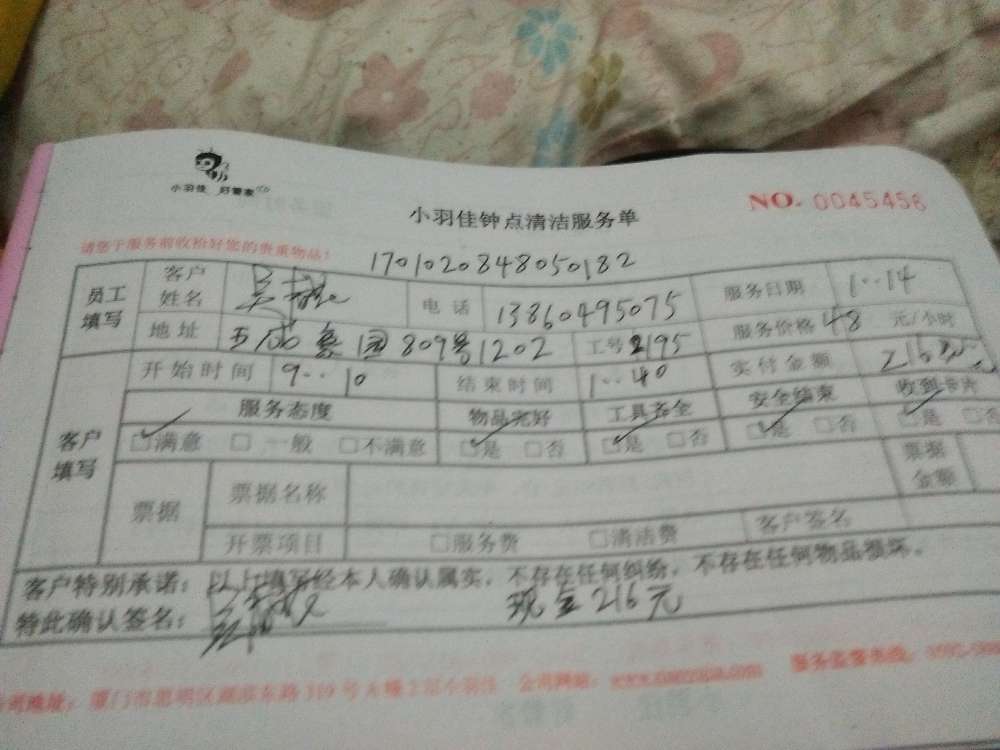 小羽佳 好管家
小羽佳钟点清洁服务单
NO. 0045456
请您于服务前收检好您的贵重物品!
1701020848050182
员工填写 客户姓名 吴 电话 13860495075 服务日期 1..14
地址 园809号1202 工号 2195 服务价格 48 元/小时
客户填写 开始时间 9..10 结束时间 1..40 实付金额 216
服务态度 物品完好 工具齐全 安全结束 收到卡片
□满意 □一般 □不满意 □是 □否 □是 □否 □是 □否 □是 □否
票据 票据名称 票据金额
开票项目 □服务费 □清洁费 客户签名
客户特别承诺: 以上填写经本人确认属实,不存在任何纠纷,不存在任何物品损坏。
特此确认签名: 现金216元
公司地址: 厦门市思明区湖滨东路319号A幢2层小羽佳 公司网站: 服务监督热线: